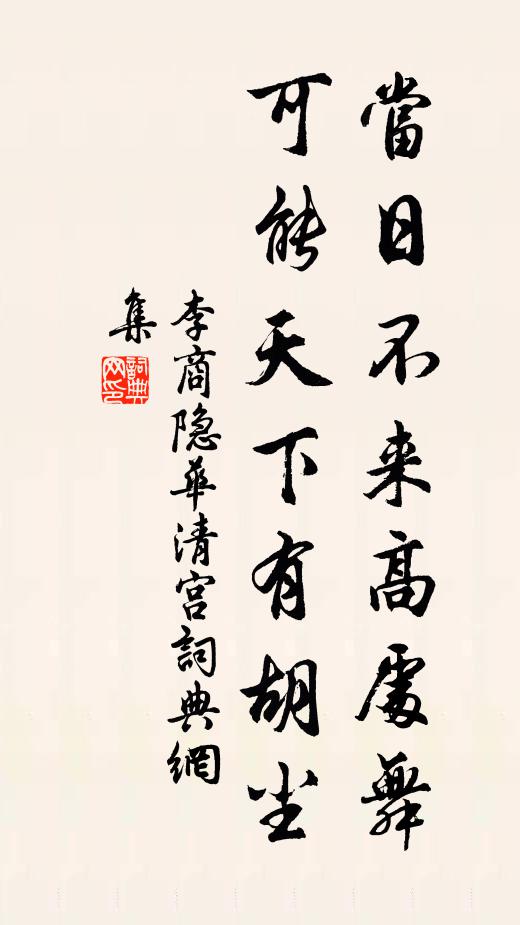 當日不来高處舞
可能天下有胡尘
李商隐華清宫詞典網
集
詞典网印